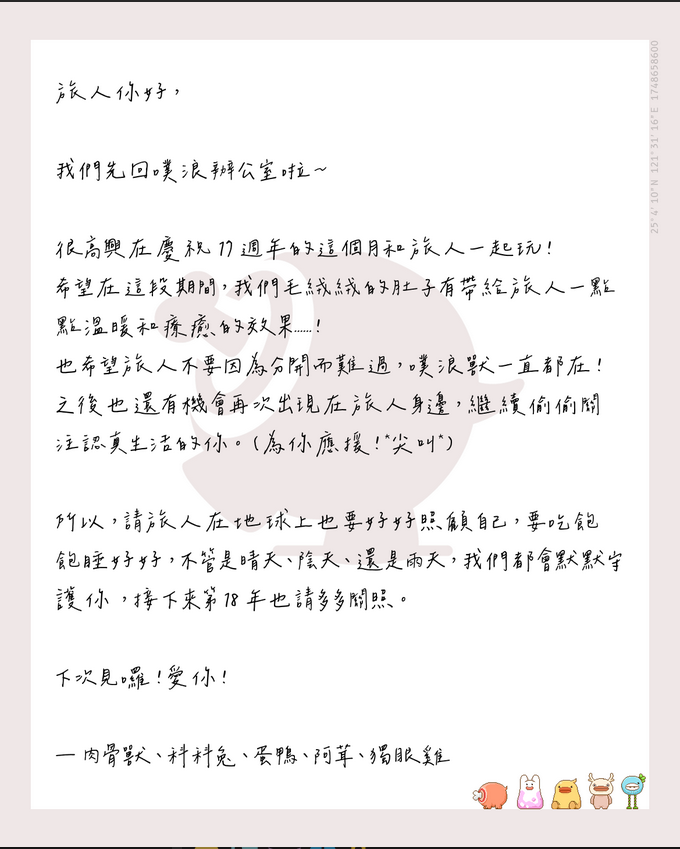 旅人你好，
我們先回噗浪辦公室啦~
很高興在慶祝17週年的這個月和旅人一起玩！
希望在這段期間，我們毛絨絨的肚子有帶給旅人一點
點溫暖和療癒的效果……！
也希望旅人不要因為分開而難過，噗浪獸一直都在！
之後也還有機會再次出現在旅人身邊，繼續偷偷關
注認真生活的你。(為你應援！*尖叫*)
所以，請旅人在地球上也要好好照顧自己，要吃飽
飽睡好好，不管是晴天、陰天、還是雨天，我們都會默默守
護你，接下來第18年也請多多關照。
下次見囉！愛你！
— 肉骨獸、科科兔、蛋鴨、阿茸、獨眼雞
25°4'10"N 121°31'16"E 1748658600